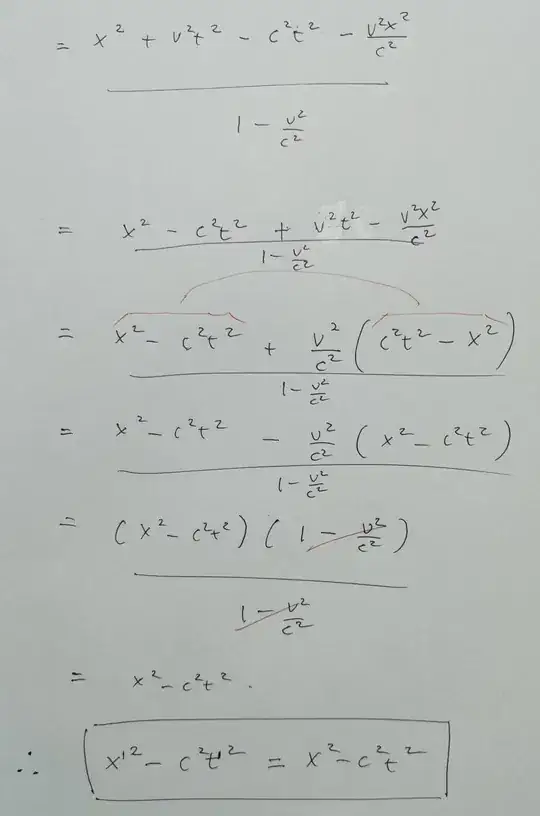 = x² + v²t² - c²t² - v²x²/c²
1 - v²/c²
= x² - c²t² + v²t² - v²x²/c²
1 - v²/c²
= x² - c²t² + v²/c² (c²t² - x²)
1 - v²/c²
= x² - c²t² - v²/c² (x² - c²t²)
1 - v²/c²
= (x² - c²t²) (1 - v²/c²)
1 - v²/c²
= x² - c²t².
∴ x'² - c²t'² = x² - c²t²